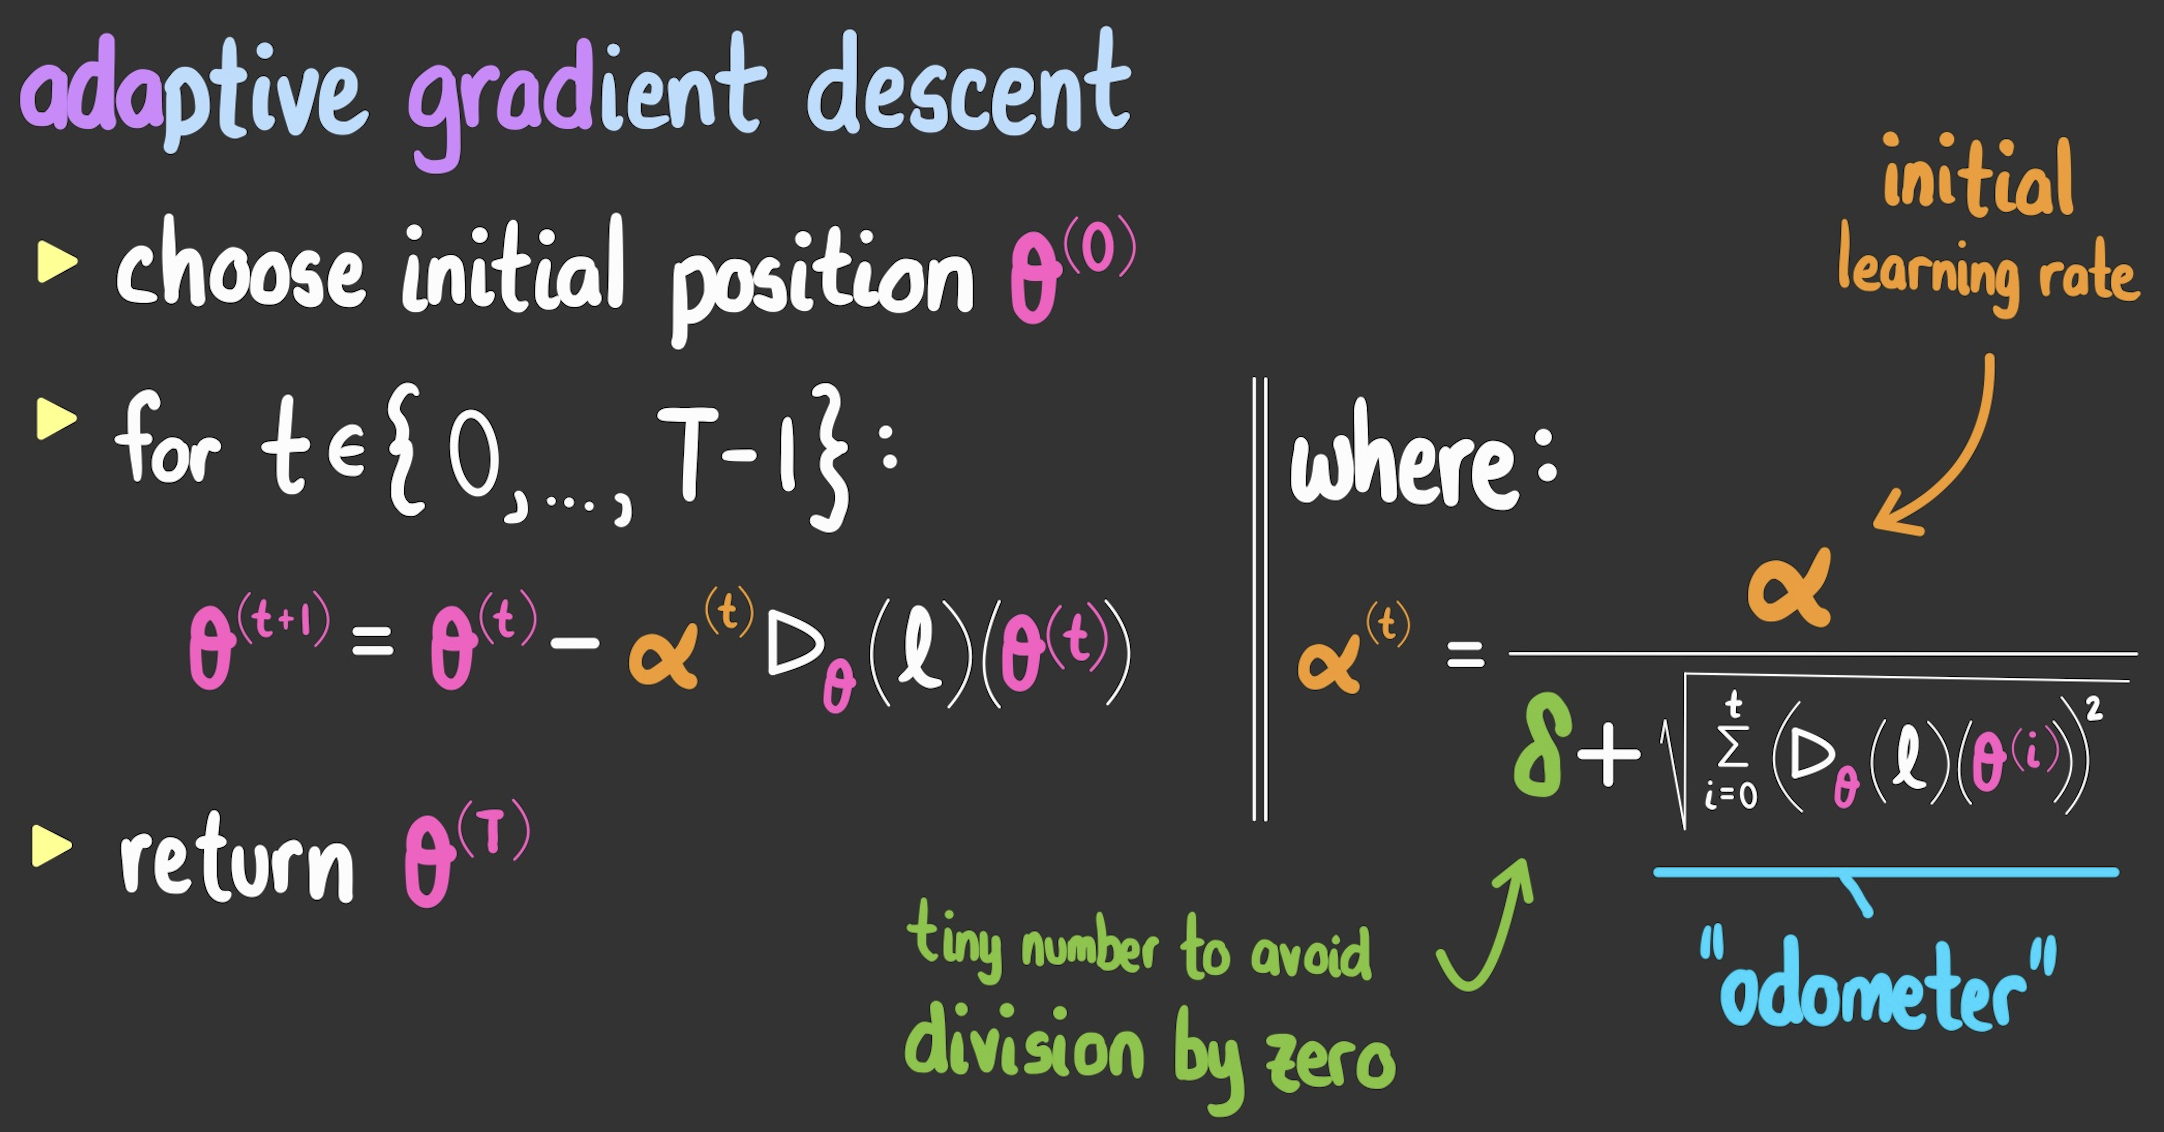 adaptive gradient descent
▶ choose initial position θ^(0)
▶ for t ∈ {0, ..., T-1}:
θ^(t+1) = θ^(t) - α^(t) ▷_θ(ℓ)(θ^(t))
▶ return θ^(T)
where:
α^(t) = α / (δ + √(∑_{i=0}^{t} (▷_θ(ℓ)(θ^(i)))^2))
initial
learning rate
tiny number to avoid
division by zero
"odometer"